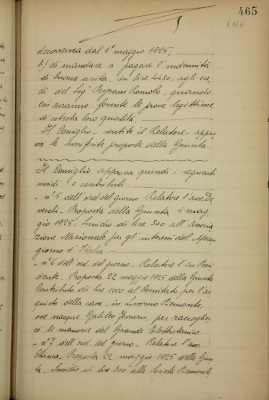 465
decorrenza dal 1° maggio 1925;
b) di mandare a pagare l'indennità
di buona uscita, in lire 4450, agli ere-
di del Sig. Romolo, quando
essi avranno fornite le prove legittime
di cotesta loro qualità.
Il Consiglio - sentito il Relatore - appro-
va le surriferite proposte della Giunta.
Il Consiglio approva quindi i seguenti
sussidi e contributi:
- n° 5 dell'ord. del giorno. Relatore l'ass. De
- Proposta della Giunta 5 mag-
gio 1925. Sussidio di lire 500 all'Associa-
zione Nazionale per gl'interessi del Mezzo-
giorno d'Italia.
- n° 6 dell'ord. del giorno. - Relatore il Presi-
dente. Proposta 22 maggio 1925 della Giunta.
Contributo di lire 1000 al Comitato per l'ac-
quisto della casa, in Livorno Piemonte,
ove nacque Galileo Ferraris, per raccoglier-
vi le memorie del Grande Elettrotecnico.
- n° 7 dell'ord. del giorno. - Relatore l'ass.
Proposta 22 maggio 1925 della Giun-
ta. - Sussidio di lire 500 alla Scuola Piemonte